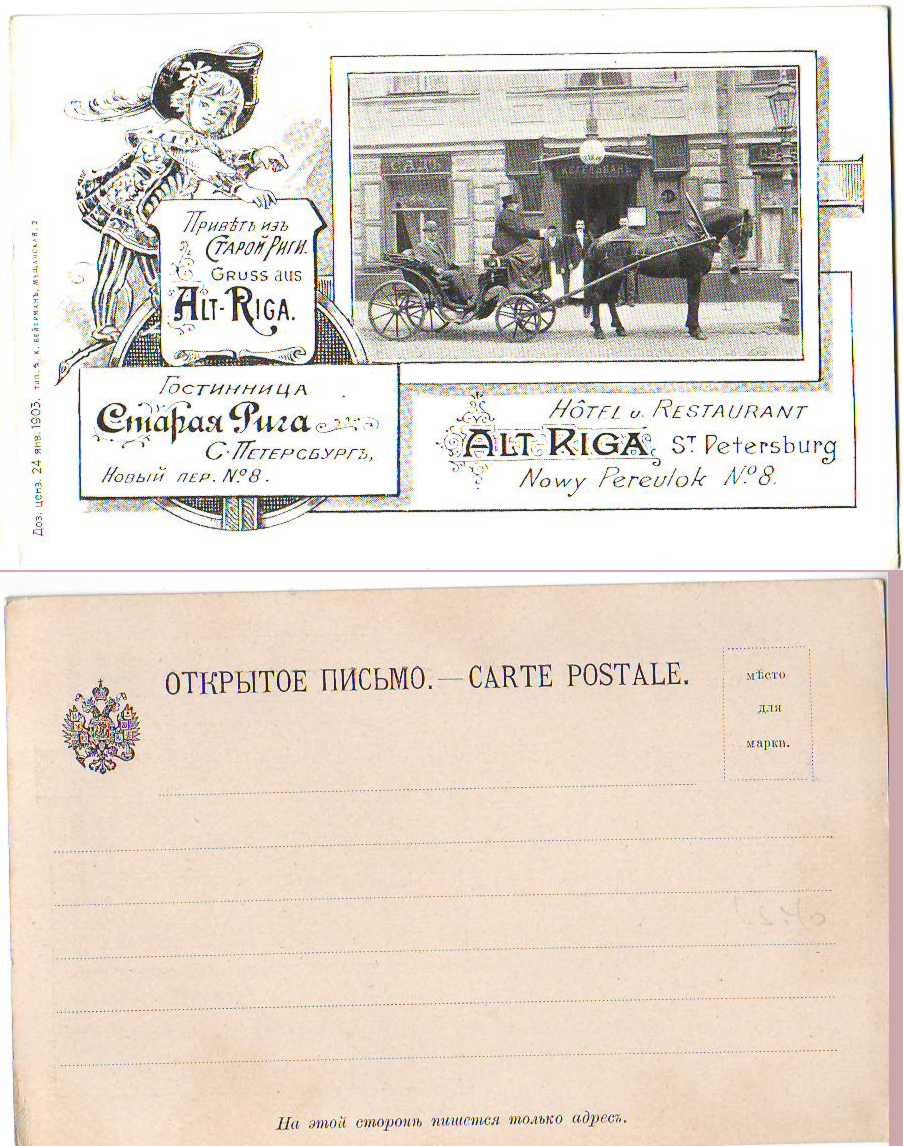 Привѣтъ изъ
Старой Риги.
Gruss aus
Alt-Riga.
Гостинница
Старая Рига
С-Петерсбургъ,
Новый пер. №8.
Hôtel u. Restaurant
Alt Riga St Petersburg
Nowy Pereulok №8.
Доз. ценз. 24 янв. 1903. тип. К. Вейерманъ, Мѣщанская, 2
ОТКРЫТОЕ ПИСЬМО.—CARTE POSTALE.
мѣсто
для
марки.
На этой сторонѣ пишется только адресъ.